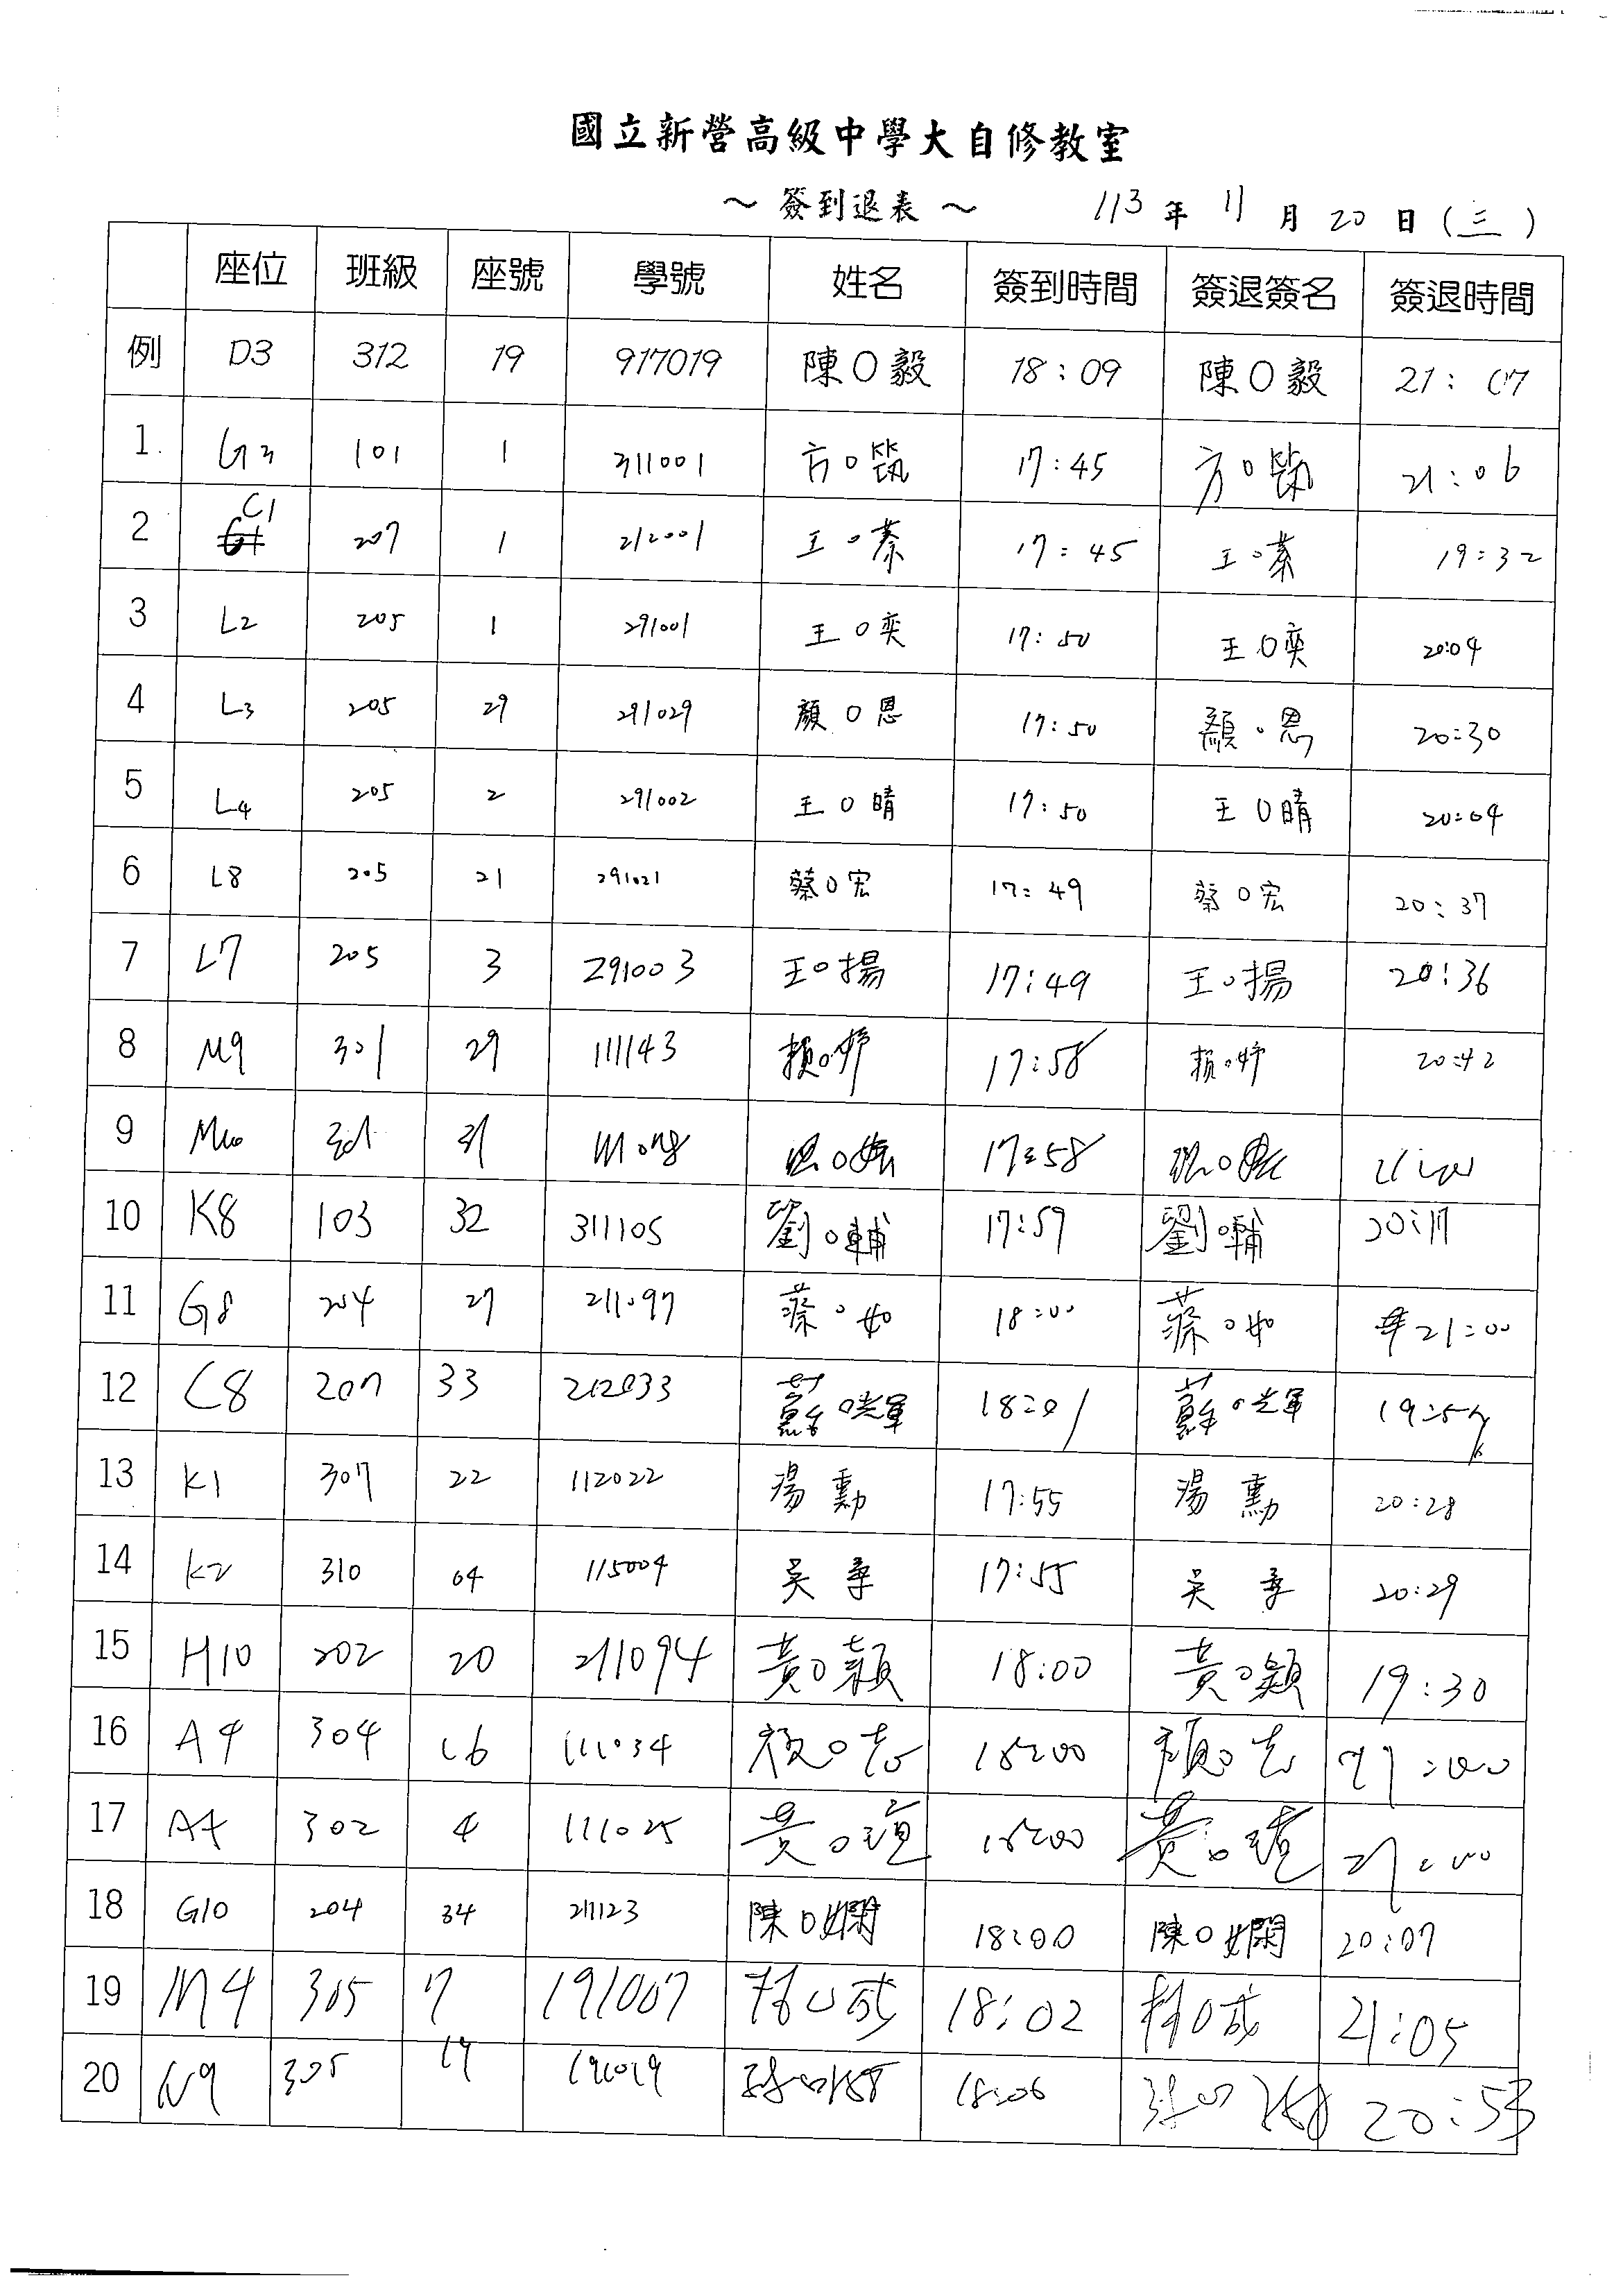 國立新營高級中學大自修教室
～ 簽到退表 ～ 113 年 11 月 20 日 (三)
座位 班級 座號 學號 姓名 簽到時間 簽退簽名 簽退時間
例 D3 312 19 917019 陳O毅 18:09 陳O毅 21:07
1. G3 101 1 311001 方O筑 17:45 方O筑 21:06
2 C1 207 1 212001 王O蓁 17:45 王O蓁 19:32
3 L2 205 1 291001 王O奕 17:50 王O奕 20:04
4 L3 205 29 291029 顏O恩 17:50 顏O恩 20:30
5 L4 205 2 291002 王O晴 17:50 王O晴 20:04
6 L8 205 21 291021 蔡O宏 17:49 蔡O宏 20:37
7 L7 205 3 291003 王O揚 17:49 王O揚 20:36
8 M9 301 29 111143 賴O妤 17:58 賴O妤 20:42
9 M10 301 31 17:58
10 K8 103 32 311105 劉O輔 17:59 劉O輔 20:17
11 G8 204 27 211097 蔡O如 18:00 蔡O如 21:00
12 C8 207 33 212033 蘇O輝 18:01 蘇O輝
13 K1 307 22 112022 湯 勳 17:55 湯 勳 20:28
14 K2 310 04 115004 吳 17:55 吳 20:29
15 H10 202 20 211094 黃O穎 18:00 黃O穎 19:30
16 A9 304 16 111034 18:00 21:00
17 A4 302 4 111025 黃O 18:00 黃O 21:00
18 G10 204 34 211123 陳O嫻 18:00 陳O嫻 20:07
19 M4 305 7 191007 18:02 21:05
20 N9 305 19 191019 18:06 20:53